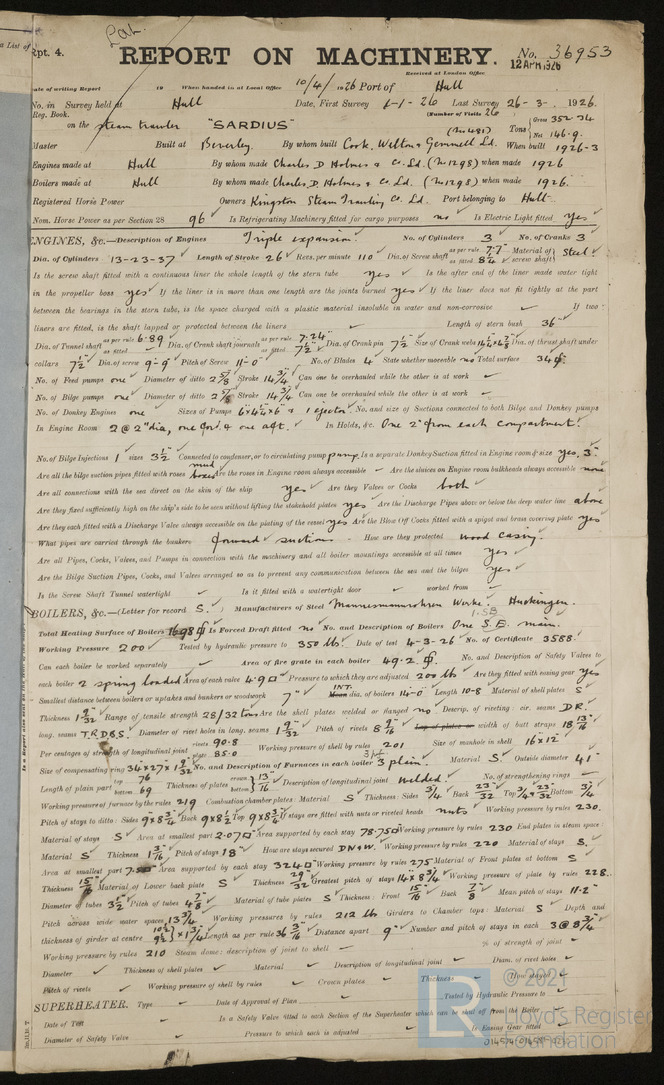 Rpt. 4.
Lat.
REPORT ON MACHINERY.
No. 36953
12 APR 1926
Received at London Office
Date of writing Report 19 When handed in at Local Office 10/4/1926 Port of Hull
No. in Survey held at Hull Date, First Survey 6-1-26 Last Survey 26-3-1926
Reg. Book. (Number of Visits 26
on the steam trawler "SARDIUS" (No 481) Tons Gross 352.34 Net 146.9
Master Built at Beverley. By whom built Cook, Welton & Gemmell Ld. When built 1926-3
Engines made at Hull By whom made Charles D. Holmes & Co. Ld. (No 1298) when made 1926
Boilers made at Hull By whom made Charles D. Holmes & Co. Ld. (No 1298) when made 1926.
Registered Horse Power Owners Kingston Steam Trawling Co. Ld. Port belonging to Hull
Nom. Horse Power as per Section 28 96 Is Refrigerating Machinery fitted for cargo purposes no Is Electric Light fitted yes
ENGINES, &c.—Description of Engines Triple expansion. No. of Cylinders 3 No. of Cranks 3
Dia. of Cylinders 13-23-37 Length of Stroke 26 Revs. per minute 110 Dia. of Screw shaft as per rule 7.7" as fitted 8¼ Material of screw shaft Steel
Is the screw shaft fitted with a continuous liner the whole length of the stern tube yes Is the after end of the liner made water tight
in the propeller boss yes If the liner is in more than one length are the joints burned yes If the liner does not fit tightly at the part
between the bearings in the stern tube, is the space charged with a plastic material insoluble in water and non-corrosive If two
liners are fitted, is the shaft lapped or protected between the liners Length of stern bush 36"
Dia. of Tunnel shaft as per rule 6.89 as fitted Dia. of Crank shaft journals as per rule 7.24 as fitted 7½ Dia. of Crank pin 7½ Size of Crank webs Dia. of thrust shaft under
collars 7½ Dia. of screw 9'-9" Pitch of Screw 11'-0" No. of Blades 4 State whether moveable no Total surface 34
No. of Feed pumps one Diameter of ditto 2⅝ Stroke 14¾ Can one be overhauled while the other is at work
No. of Bilge pumps one Diameter of ditto 2⅝ Stroke 14¾ Can one be overhauled while the other is at work
No. of Donkey Engines one Sizes of Pumps 6"x4½"x6" & 1 ejector. No. and size of Suctions connected to both Bilge and Donkey pumps
In Engine Room 2 @ 2" dia, one ford. & one aft. In Holds, &c. One 2" from each compartment.
No. of Bilge Injections 1 sizes 3½" Connected to condenser, or to circulating pump pump. Is a separate Donkey Suction fitted in Engine room & size yes. 3"
Are all the bilge suction pipes fitted with roses mud boxes Are the roses in Engine room always accessible Are the sluices on Engine room bulkheads always accessible none
Are all connections with the sea direct on the skin of the ship yes Are they Valves or Cocks both
Are they fixed sufficiently high on the ship's side to be seen without lifting the stokehold plates yes Are the Discharge Pipes above or below the deep water line above
Are they each fitted with a Discharge Valve always accessible on the plating of the vessel yes Are the Blow Off Cocks fitted with a spigot and brass covering plate yes
What pipes are carried through the bunkers forward suctions How are they protected wood casing.
Are all Pipes, Cocks, Valves, and Pumps in connection with the machinery and all boiler mountings accessible at all times yes
Are the Bilge Suction Pipes, Cocks, and Valves arranged so as to prevent any communication between the sea and the bilges yes
Is the Screw Shaft Tunnel watertight Is it fitted with a watertight door worked from
BOILERS, &c.—(Letter for record S.) Manufacturers of Steel Mannesmannrohren Werke. Huckingen.
Total Heating Surface of Boilers 1698 Is Forced Draft fitted no No. and Description of Boilers One S.E. main.
Working Pressure 200 Tested by hydraulic pressure to 350 lbs. Date of test 4-3-26 No. of Certificate 3588.
Can each boiler be worked separately Area of fire grate in each boiler 49.2 No. and Description of Safety Valves to
each boiler 2 spring loaded Area of each valve 4.9 Pressure to which they are adjusted 200 lbs Are they fitted with easing gear yes
Smallest distance between boilers or uptakes and bunkers or woodwork 7" INT. dia. of boilers 14-0 Length 10-8 Material of shell plates S
Thickness 1 9/32 Range of tensile strength 28/32 tons Are the shell plates welded or flanged no Descrip. of riveting: cir. seams D.R.
long. seams T.R.D.B.S. Diameter of rivet holes in long. seams 1 9/32 Pitch of rivets 8 9/16 Lap of plates or width of butt straps 18 13/16
Per centages of strength of longitudinal joint rivets 90.8 plate 85.0 Working pressure of shell by rules 201 Size of manhole in shell 16"x12"
Size of compensating ring 34"x27"x1 9/32 No. and Description of Furnaces in each boiler 3 plain. Material S. Outside diameter 41"
Length of plain part top 76 bottom 69 Thickness of plates crown bottom 13/16 Description of longitudinal joint welded. No. of strengthening rings
Working pressure of furnace by the rules 219 Combustion chamber plates: Material S Thickness: Sides ¾ Back 23/32 Top ¾ x 23/32 Bottom ¾
Pitch of stays to ditto: Sides 9x8¾ Back 9x8½ Top 9x8¾ If stays are fitted with nuts or riveted heads nuts Working pressure by rules 230.
Material of stays S Area at smallest part 2.07 Area supported by each stay 78.75 Working pressure by rules 230 End plates in steam space:
Material S Thickness 1 3/16 Pitch of stays 18" How are stays secured D.N&W. Working pressure by rules 220 Material of stays S.
Area at smallest part Area supported by each stay 324 Working pressure by rules 275 Material of Front plates at bottom S
Thickness 15/16 Material of Lower back plate S Thickness 29/32 Greatest pitch of stays 14"x8¾" Working pressure of plate by rules 228..
Diameter of tubes 3½ Pitch of tubes 4⅞ Material of tube plates S Thickness: Front 15/16 Back ⅞ Mean pitch of stays 11.2"
Pitch across wide water spaces 13¾ Working pressures by rules 212 lbs Girders to Chamber tops: Material S Depth and
thickness of girder at centre 10½ 9½ } x 1¾ Length as per rule 36 3/16 Distance apart 9" Number and pitch of stays in each 3 @ 8¾"
Working pressure by rules 210 Steam dome: description of joint to shell % of strength of joint
Diameter Thickness of shell plates Material Description of longitudinal joint Diam. of rivet holes
Pitch of rivets Working pressure of shell by rules Crown plates Thickness How stayed
SUPERHEATER. Type Date of Approval of Plan Tested by Hydraulic Pressure to
Date of Test Is a Safety Valve fitted to each Section of the Superheater which can be shut off from the Boiler
Diameter of Safety Valve Pressure to which each is adjusted Is Easing Gear fitted
© 2021
LR
Lloyd's Register
Foundation